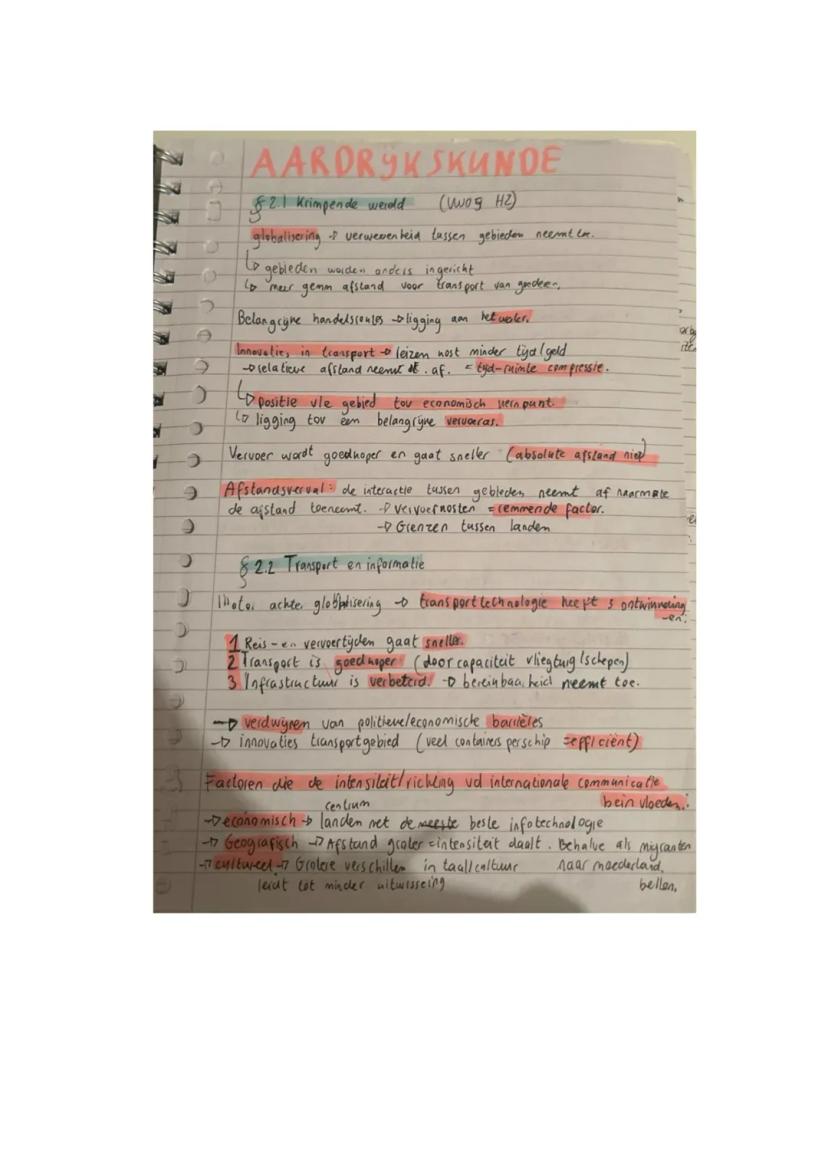 AARDRIJKSKUNDE
§ 2.1 Krimpende wereld (vwo 5 H2)
globalisering → verwevenheid tussen gebieden neemt toe.
↳ gebieden worden anders ingericht
↳ meer gemm afstand voor transport van goederen.
Belangrijke handelsroutes → ligging aan het water.
Innovaties in transport → reizen kost minder tijd/geld
→ relatieve afstand neemt af. = tijd-ruimte compressie.
↳ positie v/e gebied tov economisch kernpunt.
↳ ligging tov een belangrijke vervoeras.
Vervoer wordt goedkoper en gaat sneller (absolute afstand niet)
Afstandsverval: de interactie tussen gebieden neemt af naarmate
de afstand toeneemt. → vervoerkosten = remmende factor.
→ Grenzen tussen landen
§ 2.2 Transport en informatie
Motor achter globalisering → transporttechnologie heeft 3 ontwikkeling
-en:
1 Reis- en vervoertijden gaat sneller.
2 Transport is goedkoper (door capaciteit vliegtuig/schepen)
3 Infrastructuur is verbeterd. → bereikbaarheid neemt toe.
→ verdwijnen van politieke/economische barrières
→ innovaties transportgebied (veel containers per schip = efficiënt)
Factoren die de intensiteit/richting vd internationale communicatie
beïnvloeden:
centrum
→ economisch → landen met de meeste beste infotechnologie
→ Geografisch → Afstand groter = intensiteit daalt. Behalve als migranten
→ cultureel → Grotere verschillen in taal/cultuur naar moederland
leidt tot minder uitwisseling bellen.